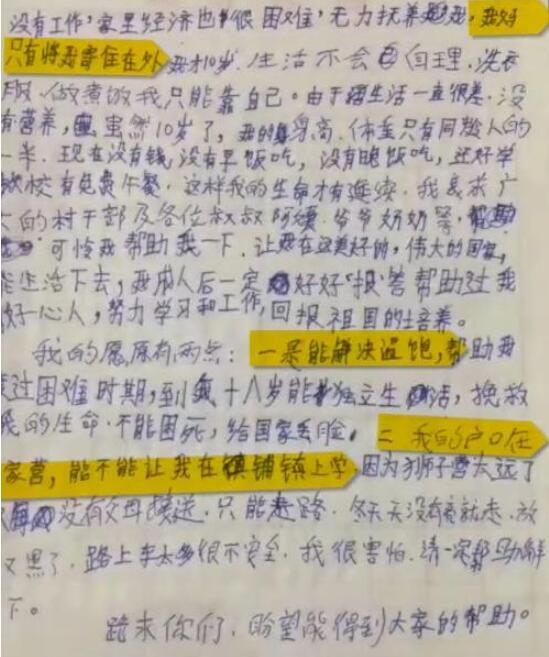 没有工作，家里经济也很困难，无力扶养我，我妈
只有将我寄住在外，我才10岁，生活不会自理，洗衣
服、做煮饭我只能靠自己。由于生活一直很差，没
有营养，虽然10岁了，我的身高、体重只有同龄人的
一半，现在没有钱，没有早饭吃，没有晚饭吃，还好学
校有免费午餐，这样我的生命才有连续，我恳求广
大的村干部及各位叔叔阿姨、爷爷奶奶等，帮助
可怜我帮助我一下，让我在这美好的，伟大的国家，
能生活下去，我成人后一定好好"报"答帮助过我
好心人，努力学习和工作，回报祖国的培养。
我的愿原有两点：一是能解决温饱，帮助我
度过困难时期，到我十八岁能独立生活，挽救
我的生命，不能困死，给国家丢脸。二我的户口在
家营，能不能让我在镇铺镇上学，因为狮子营太远了
没有父母接送，只能走路，冬天天没有亮就走，放
又黑了，路上车太多很不安全，我很害怕，请一定帮助解
下。
跪求你们，盼望能得到大家的帮助。